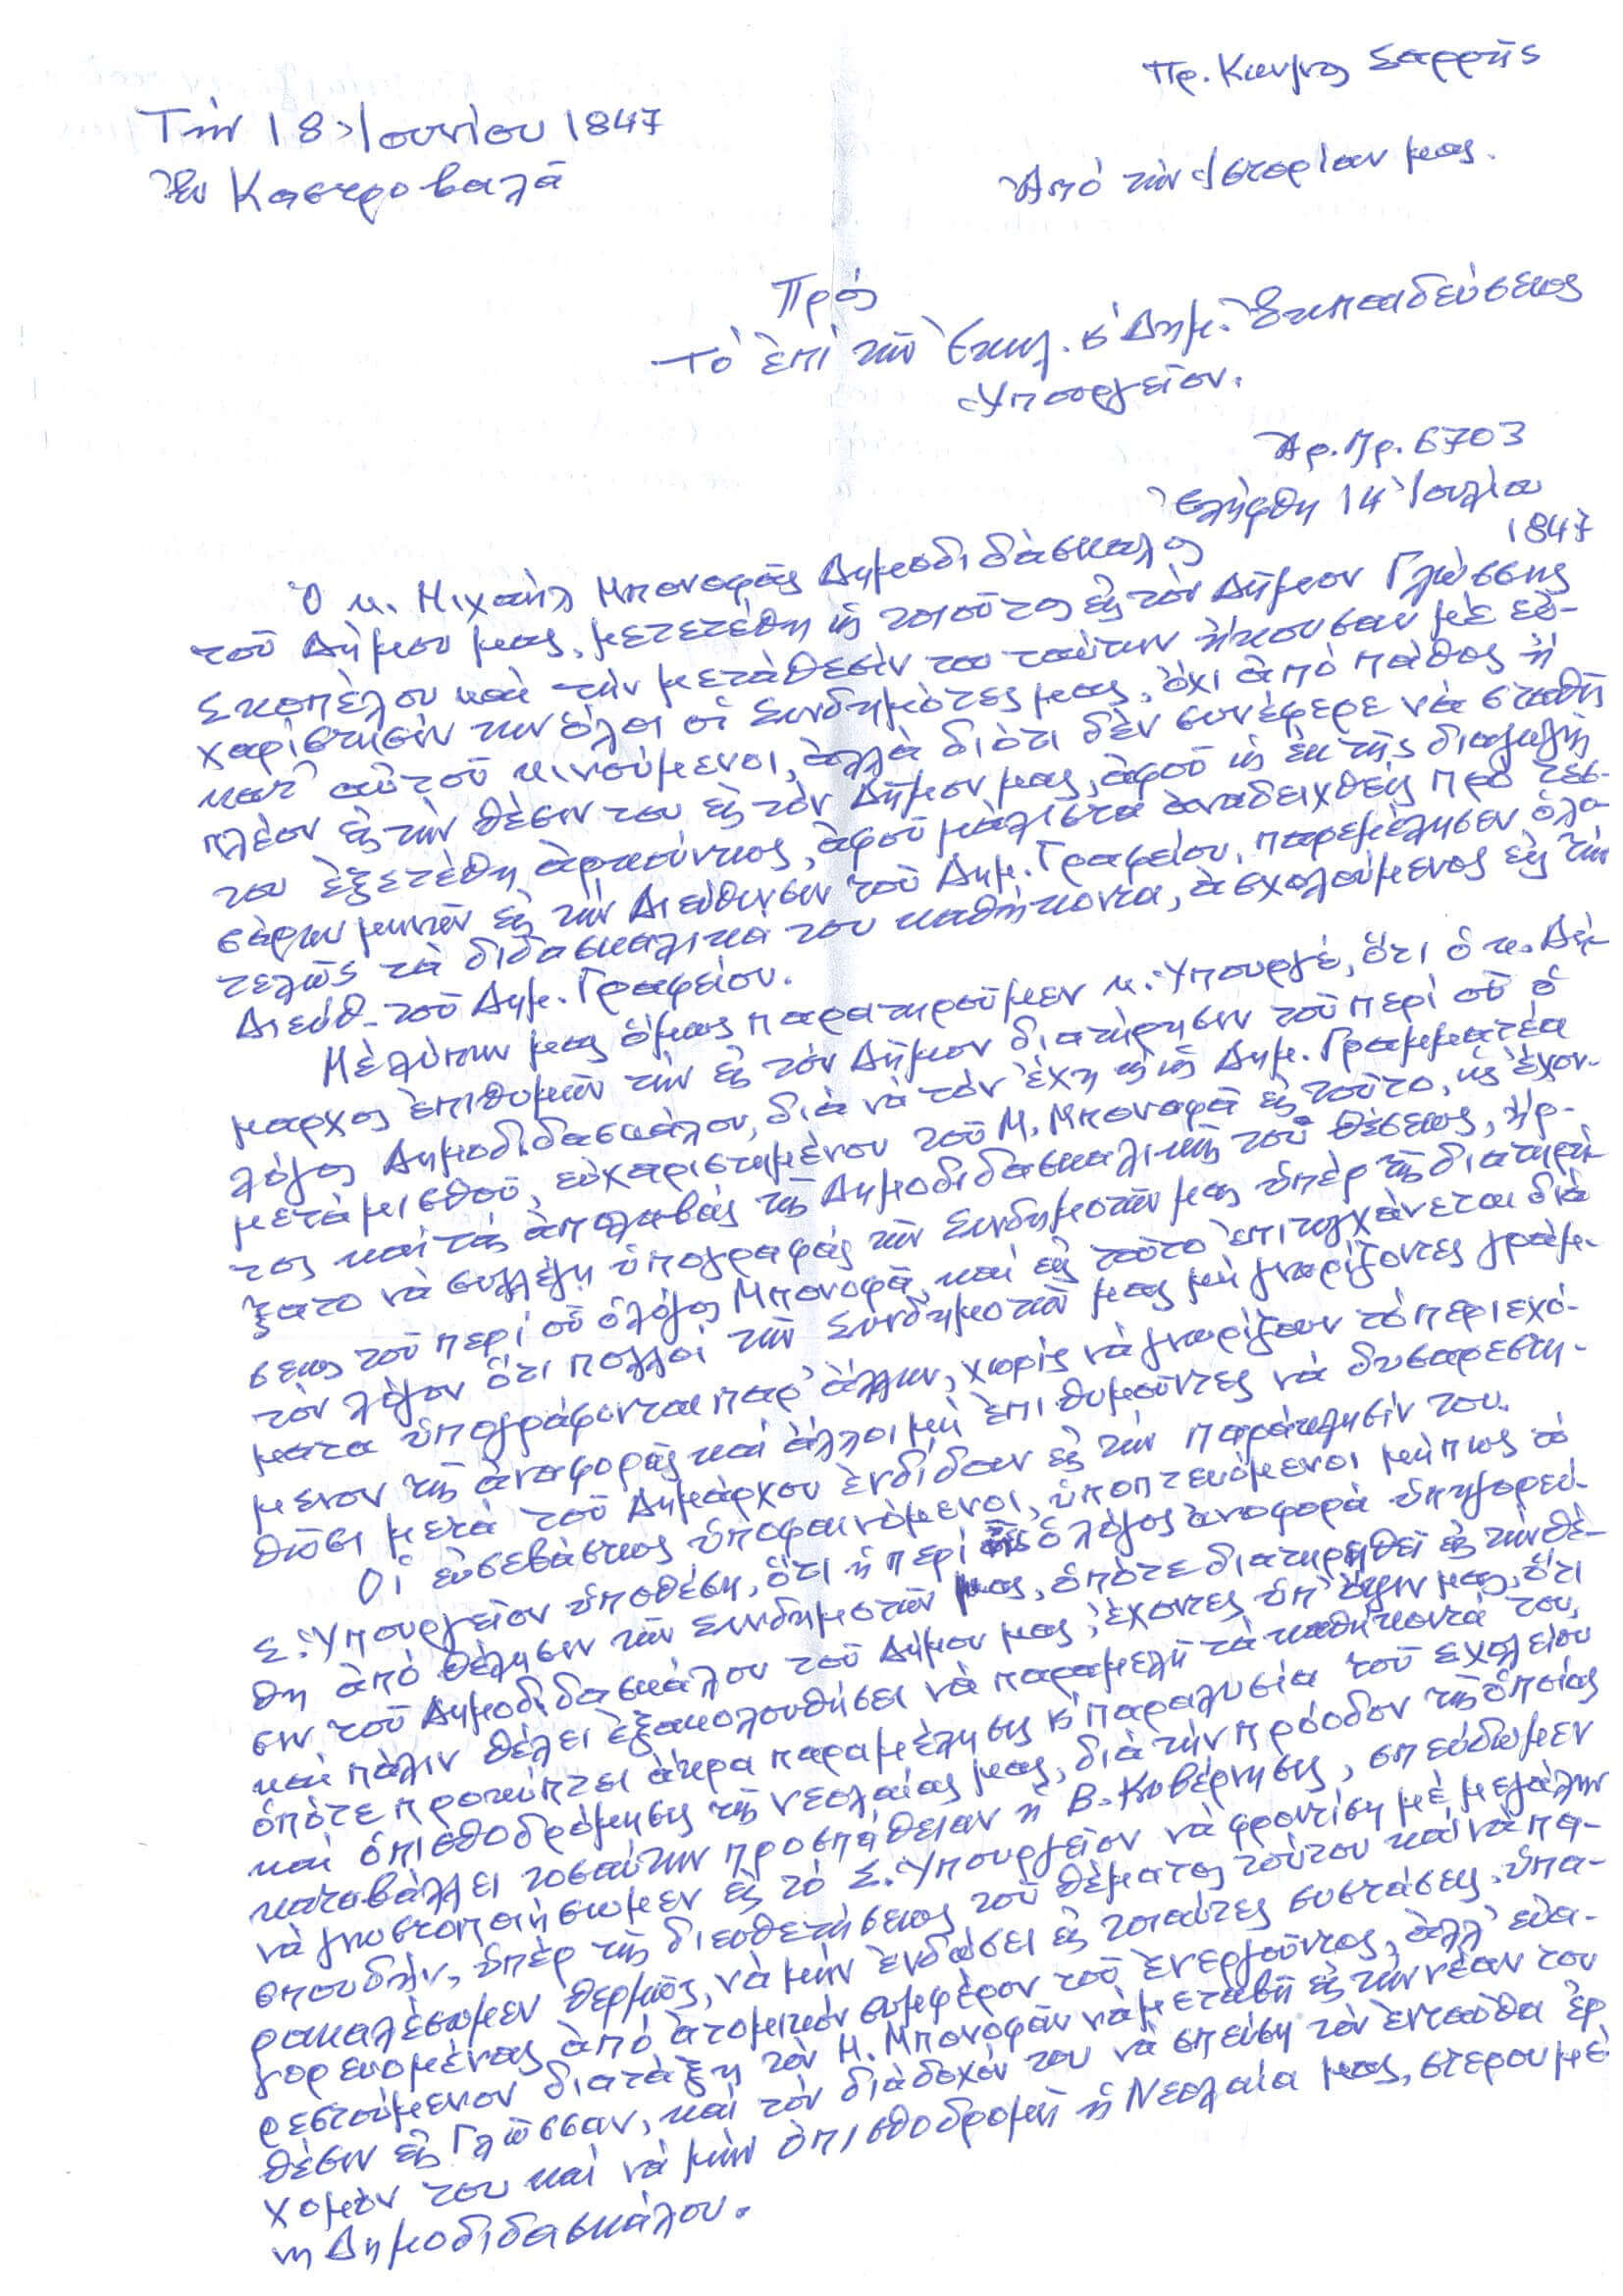 Πρ. Κων/νος Σαρρῆς
Τὴν 18 Ἰουνίου 1847
Ἀπό τὴν Ἱστορίαν μας.
Ἐν Καστροβαλᾶ
Πρός
Τό ἐπί τῶν Ἐκκλ. & Δημ. Ἐκπαιδεύσεως
Ὑπουργεῖον.
Ἀρ. Πρ. 6703
Ἐλήφθη 14 Ἰουλίου
1847
Ὁ κ. Μιχαήλ Μπονοφᾶς Δημοδιδάσκαλος
τοῦ Δήμου μας, μετετέθη ὡς τοιοῦτος εἰς τὸν Δῆμον Γλώσσης
Σκοπέλου καὶ τὴν μετάθεσίν του ταύτην ἤκουσαν μὲ εὐ-
χαρίστησίν των ὅλοι οἱ Συνδημότες μας, ὄχι ἀπό πάθος ἤ
κατ' αὐτοῦ κινούμενοι, ἀλλὰ διότι δὲν συνέφερε νὰ σταθῆ
πλέον εἰς τὴν θέσιν του εἰς τὸν Δῆμον μας, ἀφοῦ ὡς ἐκ τῆς διαγωγῆς
του ἐξετέθη ἀρκούντως, ἀφοῦ μάλιστα ἀναδειχθείς πρό τεσ-
σάρων μηνῶν εἰς τὴν Διεύθυνσιν τοῦ Δημ. Γραφείου, παρεμέλησεν ὁλο-
τελῶς τὰ διδασκαλικά του καθήκοντα, ἀσχολούμενος εἰς τὴν
Διεύθ. τοῦ Δημ. Γραφείου.
Μὲ λύπην μας ὅμως παρατηροῦμεν κ. Ὑπουργέ, ὅτι ὁ κ. Δή-
μαρχος ἐπιθυμῶν τὴν εἰς τὸν Δῆμον διατήρησιν τοῦ περί οὗ ὁ
λόγος Δημοδιδασκάλου, διὰ νὰ τὸν ἔχῃ ὡς Δημ. Γραμματέα
μετά μισθοῦ, εὐχαριστημένου τοῦ Μ. Μπονοφᾶ εἰς τοῦτο, ὡς ἔχον-
τος καί τάς ἀπολαβάς τῆς Δημοδιδασκαλικῆς του θέσεως, ἤρ-
ξατο νὰ συλλέγῃ ὑπογραφάς τῶν Συνδημοτῶν μας ὑπέρ τῆς διατηρή-
σεως τοῦ περί οὗ ὁ λόγος Μπονοφᾶ, καί εἰς τοῦτο ἐπιτυγχάνεται διά
τὸν λόγον ὅτι πολλοί τῶν Συνδημοτῶν μας μή γνωρίζοντες γράμ-
ματα ὑπογράφονται παρ' ἄλλων, χωρίς νὰ γνωρίζουν τό περιεχό-
μενον τῆς ἀναφορᾶς καί ἄλλοι μή ἐπιθυμοῦντες νὰ δυσαρεστη-
θῶσι μετά τοῦ Δημάρχου ἐνδίδουν εἰς τὴν παράκλησίν του.
Οἱ εὐσεβάστως ὑποφαινόμενοι, ὑποπτευόμενοι μήπως τό
Σ. Ὑπουργεῖον ὑποθέσῃ, ὅτι ἡ περί ἧς ὁ λόγος ἀναφορά ὑπηγορεύ-
θη ἀπό θέλησιν τῶν Συνδημοτῶν μας, ὁπότε διατηρηθεῖ εἰς τὴν θέ-
σιν τοῦ Δημοδιδασκάλου τοῦ Δήμου μας, ἔχοντες ὑπ' ὄψιν μας, ὅτι
καί πάλιν θέλει ἐξακολουθήσει νὰ παραμελῆ τὰ καθήκοντά του,
ὁπότε προκύπτει ἄκρα παραμέλησις & παραλυσία τοῦ σχολείου
καί ὀπισθοδρόμησις τῆς νεολαίας μας, διὰ τὴν πρόοδον τῆς ὁποίας
καταβάλλει τοσαύτην προσπάθειαν ἡ Β. Κυβέρνησις, σπεύδωμεν
νὰ γνωστοποιήσωμεν εἰς τό Σ. Ὑπουργεῖον νὰ φροντίσῃ μέ μεγάλην
σπουδήν, ὑπέρ τῆς διευθετήσεως τοῦ θέματος τούτου καί νὰ πα-
ρακαλέσωμεν θερμῶς, νὰ μὴν ἐνδώσει εἰς τοιαύτες συστάσεις, ὑπα-
γορευομένας ἀπό ἀτομικόν συμφέρον τοῦ ἐνεργοῦντος, ἀλλ' εὐα-
ρεστούμενον διατάξῃ τὸν Μ. Μπονοφᾶν νὰ μεταβῆ εἰς τὴν νέαν του
θέσιν εἰς Γλῶσσαν, καί τὸν διάδοχόν του νὰ σπεύσῃ τὸν ἐνταῦθα ἐρ-
χομόν του καί νὰ μήν ὀπισθοδρομῆ ἡ Νεολαία μας, στερουμέ-
νη Δημοδιδασκάλου.